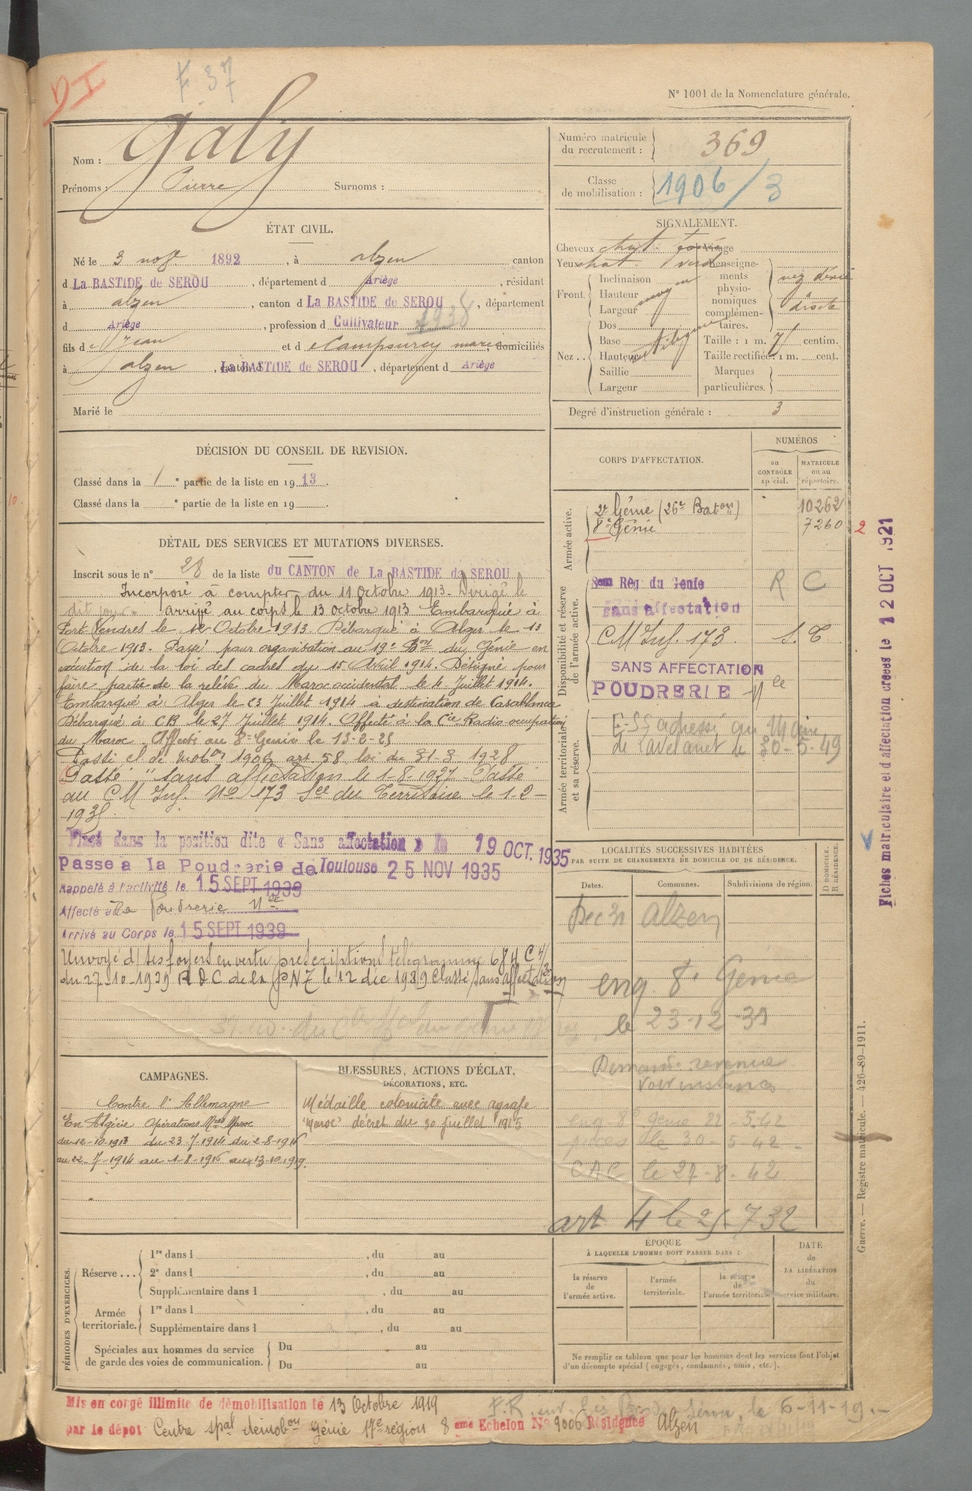 DI
F 37
N° 1001 de la Nomenclature générale.
Nom : Galy
Prénoms : Pierre Surnoms :
Numéro matricule du recrutement : 369
Classe de mobilisation : 1906/3
ÉTAT CIVIL.
Né le 3 1892, à Alzen canton
d La BASTIDE de SEROU, département d Ariège, résidant
à Alzen, canton d La BASTIDE de SEROU, département
d Ariège, profession d Cultivateur 1938
fils de Jean et d domiciliés
à Alzen, La BASTIDE de SEROU, département d Ariège
Marié le
SIGNALEMENT.
Cheveux chat.
Yeux chat.
Front
Inclinaison
Hauteur moyen
Largeur
Nez
Dos
Base
Hauteur
Saillie
Largeur
Renseignements physionomiques complémentaires. nez dévié droite
Taille : 1 m. 71 centim.
Taille rectifiée : 1 m. cent.
Marques particulières.
Degré d'instruction générale : 3
DÉCISION DU CONSEIL DE REVISION.
Classé dans la 1 e partie de la liste en 1913.
Classé dans la e partie de la liste en 19
DÉTAIL DES SERVICES ET MUTATIONS DIVERSES.
Inscrit sous le n° 28 de la liste du CANTON de La BASTIDE de SEROU
Incorporé à compter du 11 Octobre 1913. Dirigé le
dit jour. arrivé au corps le 13 octobre 1913 Embarqué à
Port Vendres le 12 Octobre 1913. Débarqué à Alger le 13
Octobre 1913. Passé pour organisation au 19e Bon du Génie en
exécution de la loi des cadres du 15 Avril 1914. Désigné pour
faire partie de la relève du Maroc occidental le 4 Juillet 1914.
Embarqué à Alger le 23 Juillet 1914 à destination de Casablanca
Débarqué à CB le 27 Juillet 1914. Affecté à la Cie Radio occupation
du Maroc. Affecté au 8e Génie le 13-6-25
Passé cl. de mobon 1906 art 58 loi du 31-3 1928
Passé "sans affectation le 1-8-1927. Passé
au C M Inf. No 173 Sce du Territoire le 1-2-
Placé dans la position dite « Sans affectation » le 19 OCT. 1935
Passé à la Poudrerie de Toulouse 25 NOV 1935
Rappelé à l'activité le 15 SEPT 1939
Affecté à la Poudrerie Nle
Arrivé au Corps le 15 SEPT 1939
Renvoyé d/ ses foyers en vertu prescriptions télégramme
du 27-10-1939 le 12 déc 1939 Classé sans affectation
CORPS D'AFFECTATION.
NUMÉROS
au CONTRÔLE spécial.
MATRICULE ou au répertoire.
Armée active.
2e Génie (26e Baton) 10262
8e Génie 7260 2
Disponibilité et réserve de l'armée active.
8em Rég du Génie R C
sans affectation
C.M. Inf. 173. S. T
SANS AFFECTATION
POUDRERIE Nle
Armée territoriale et sa réserve.
de Lavelanet le 30-5-49
Fiches matriculaire et d'affectation créées le 12 OCT 1921
LOCALITÉS SUCCESSIVES HABITÉES
PAR SUITE DE CHANGEMENTS DE DOMICILE OU DE RÉSIDENCE.
Dates. Communes. Subdivisions de région. D DOMICILE. R RÉSIDENCE.
Dec 31 Alzen
enq. 8e Genie
le 23-12-31
Demande revenue
enq 8e Genie 22-5.42
le 30-5-42
CAC le 27-8-42
art 4 le 732
CAMPAGNES.
Contre l'Allemagne
En Algérie Opérations Mres Maroc
du 12-10-1913 du 23-7-1914 du 2-8-1914
au 22-7-1914 au 1-8-1914 au 13-10-1919.
BLESSURES, ACTIONS D'ÉCLAT,
DÉCORATIONS, ETC.
Médaille coloniale avec agrafe
"Maroc" décret du 30 juillet 1915
PÉRIODES D'EXERCICES.
Réserve...
1re dans l , du au
2e dans l , du au
Supplémentaire dans l , du au
Armée territoriale.
1re dans l , du au
Supplémentaire dans l , du au
Spéciales aux hommes du service de garde des voies de communication.
Du au
Du au
ÉPOQUE
À LAQUELLE L'HOMME DOIT PASSER DANS :
la réserve de l'armée active.
l'armée territoriale.
la réserve de l'armée territoriale.
DATE de LA LIBÉRATION du service militaire.
Ne remplir ce tableau que pour les hommes dont les services font l'objet
d'un décompte spécial (engagés, condamnés, omis, etc.).
Guerre. — Registre matricule. — 426-89-1911.
Mis en congé illimité de démobilisation le 13 Octobre 1919
par le dépôt Centre spal démobon Génie 17e région 8 eme Echelon N° 9006 Résidence Alzen
le 6-11-19.